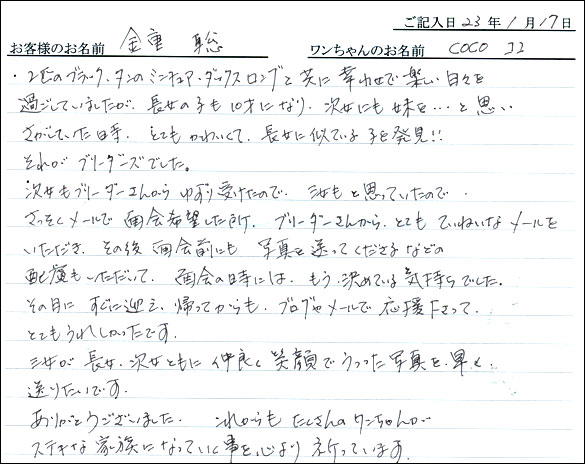 ご記入日 23年 1月 17日
お客様のお名前 金重 聡 ワンちゃんのお名前 COCO ココ
・2匹のブラック・タンのミニチュア・ダックスロングと共に幸わせで楽しい日々を
過ごしていましたが、長女の子も10才になり、次女にも妹を…と思い
さがしていた時、とてもかわいくて、長女に似ている子を発見!!
それがブリーダーズでした。
次女もブリーダーさんからゆずり受けたので、三女もと思っていたので、
さっそくメールで面会希望した所、ブリーダーさんから、とてもていねいなメールを
いただき、その後面会前にも写真を送ってくださるなどの
配慮もいただいて、面会の日時には、もう決めている気持ちでした。
その日にすぐに迎え、帰ってからも、ブログやメールで応援下さって、
とてもうれしかったです。
三女が長女、次女ともに仲良く笑顔でうつった写真を早く
送りたいです。
ありがとうございました。 これからもたくさんのワンちゃんが
ステキな家族になっていく事を心より祈っています。